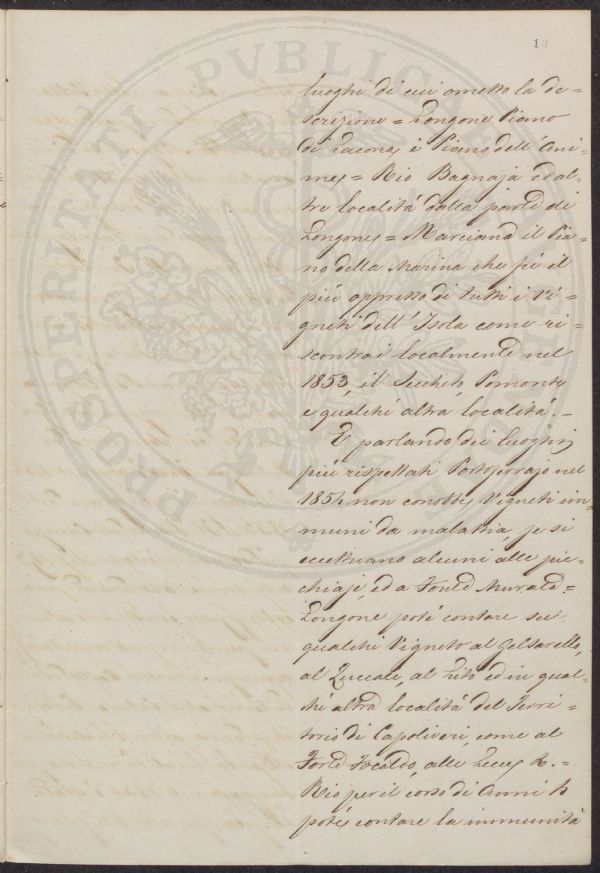 10
luoghi di cui ometto la de=
scrizione = Longone Piano
di Lacona, e Piano dell'Ani=
me, = Rio Bagnaja ed al=
tre località dalla parte di
Longone, = Marciana il Pia=
no della Marina che fù il
più oppresso di tutti i Vi=
gneti dell'Isola come ri=
scontrai localmente nel
1853, il Pomonte
e qualche altra località. =
E parlando dei luoghi
più rispettati Portoferrajo nel
1854 non conobbe Vigneti im=
muni da malattia, se si
eccettuano alcuni alle pie=
chiaje, ed a Fonte Murata =
Longone poté contare su
qualche Vigneto al Gelsarello,
al Zuccale, al ed in qual=
che altra località del Terri=
torio di Capoliveri, come al
Forte Focardo, alle =
Rio per il corso di Anni 4
poté contare la immunità
PVBLICAE
PROSPERITATI